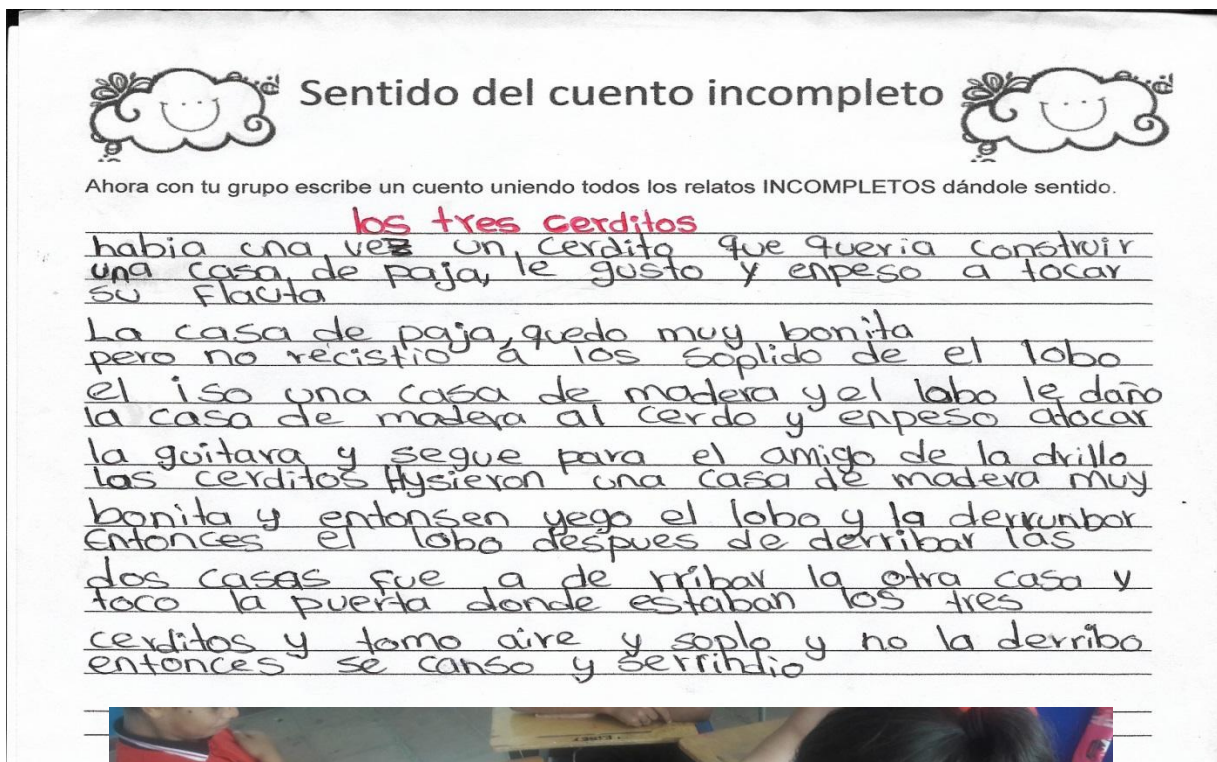 Sentido del cuento incompleto
Ahora con tu grupo escribe un cuento uniendo todos los relatos INCOMPLETOS dándole sentido.
los tres cerditos
habia una vez un cerdito que queria construir
una casa de paja, le gusto y enpeso a tocar
su flauta
La casa de paja, quedo muy bonita
pero no recistio a los soplido de el lobo
el iso una casa de madera y el lobo le daño
la casa de madera al cerdo y enpeso atocar
la guitara y segue para el amigo de la drillo
las cerditos Hysieron una casa de madera muy
bonita y entonsen yego el lobo y la derrunbor
Entonces el lobo despues de derribar las
dos casas fue a de rribar la otra casa y
toco la puerta donde estaban los tres
cerditos y tomo aire y soplo y no la derribo
entonces se canso y serrindio